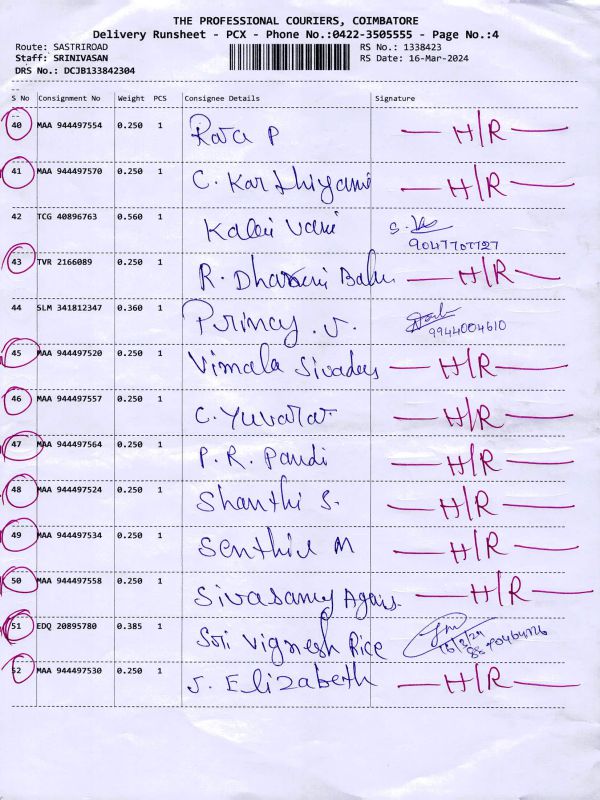 THE PROFESSIONAL COURIERS, COIMBATORE
Delivery Runsheet - PCX - Phone No.:0422-3505555 - Page No.:4
Route: SASTRIROAD RS No.: 1338423
Staff: SRINIVASAN RS Date: 16-Mar-2024
DRS No.: DCJB133842304
S No Consignment No Weight PCS Consignee Details Signature
40 MAA 944497554 0.250 1 Raja P H/R
41 MAA 944497570 0.250 1 C. Karthiyani H/R
42 TCG 40896763 0.560 1 Kalai Vani
43 TVR 2166089 0.250 1 R. Dharani Babu H/R
44 SLM 341812347 0.360 1 Princy . J. 9944004610
45 MAA 944497520 0.250 1 Vimala Sivadas H/R
46 MAA 944497557 0.250 1 C. Yuvaraj H/R
47 MAA 944497564 0.250 1 P. R. Pandi H/R
48 MAA 944497524 0.250 1 Shanthi S. H/R
49 MAA 944497534 0.250 1 Senthil M H/R
50 MAA 944497558 0.250 1 Sivasamy H/R
51 EDQ 20895780 0.385 1 Sri Vignesh Rice 16/3/24
52 MAA 944497530 0.250 1 J. Elizabeth H/R